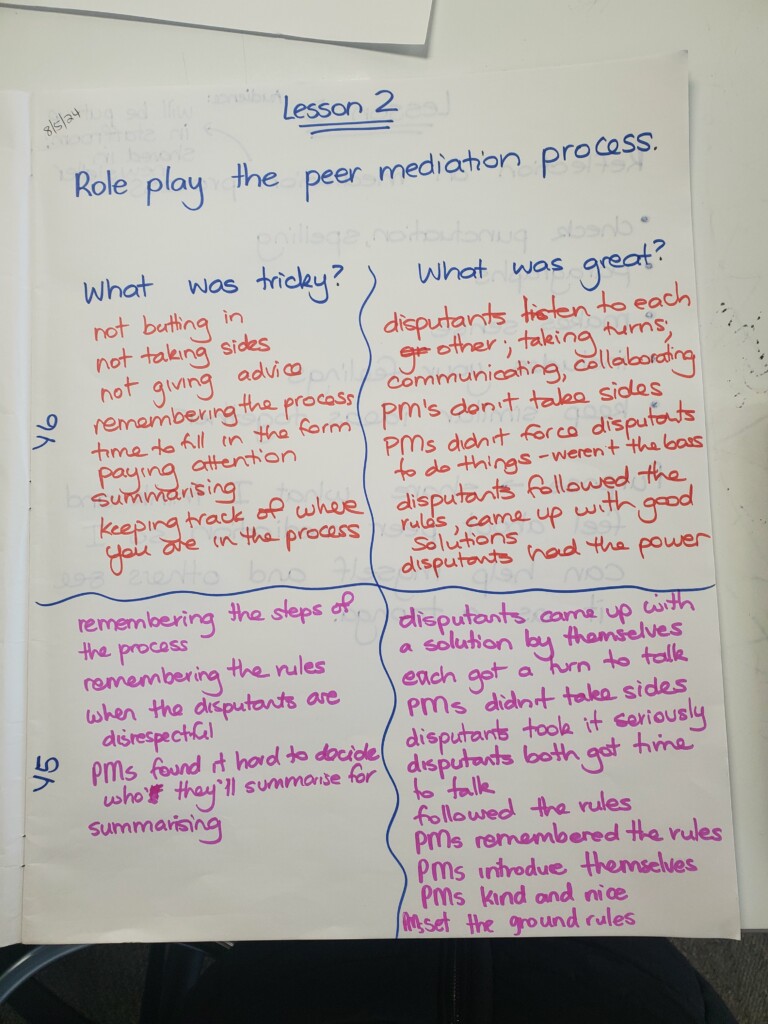 8/5/24
Lesson 2
Role play the peer mediation process.
What was tricky?
not butting in
not taking sides
not giving advice
remembering the process
time to fill in the form
paying attention
summarising
keeping track of where
you are in the process
What was great?
disputants listen to each
other; taking turns,
communicating, collaborating
PM's don't take sides
PMs didn't force disputants
to do things - weren't the boss
disputants followed the
rules, came up with good
solutions
disputants had the power
Y6
remembering the steps of
the process
remembering the rules
when the disputants are
disrespectful
PMs found it hard to decide
who they'll summarise for
summarising
disputants came up with
a solution by themselves
each got a turn to talk
PMs didn't take sides
disputants took it seriously
disputants both got time
to talk
followed the rules
PMs remembered the rules
PMs introdue themselves
PMs kind and nice
PMs set the ground rules
Y5